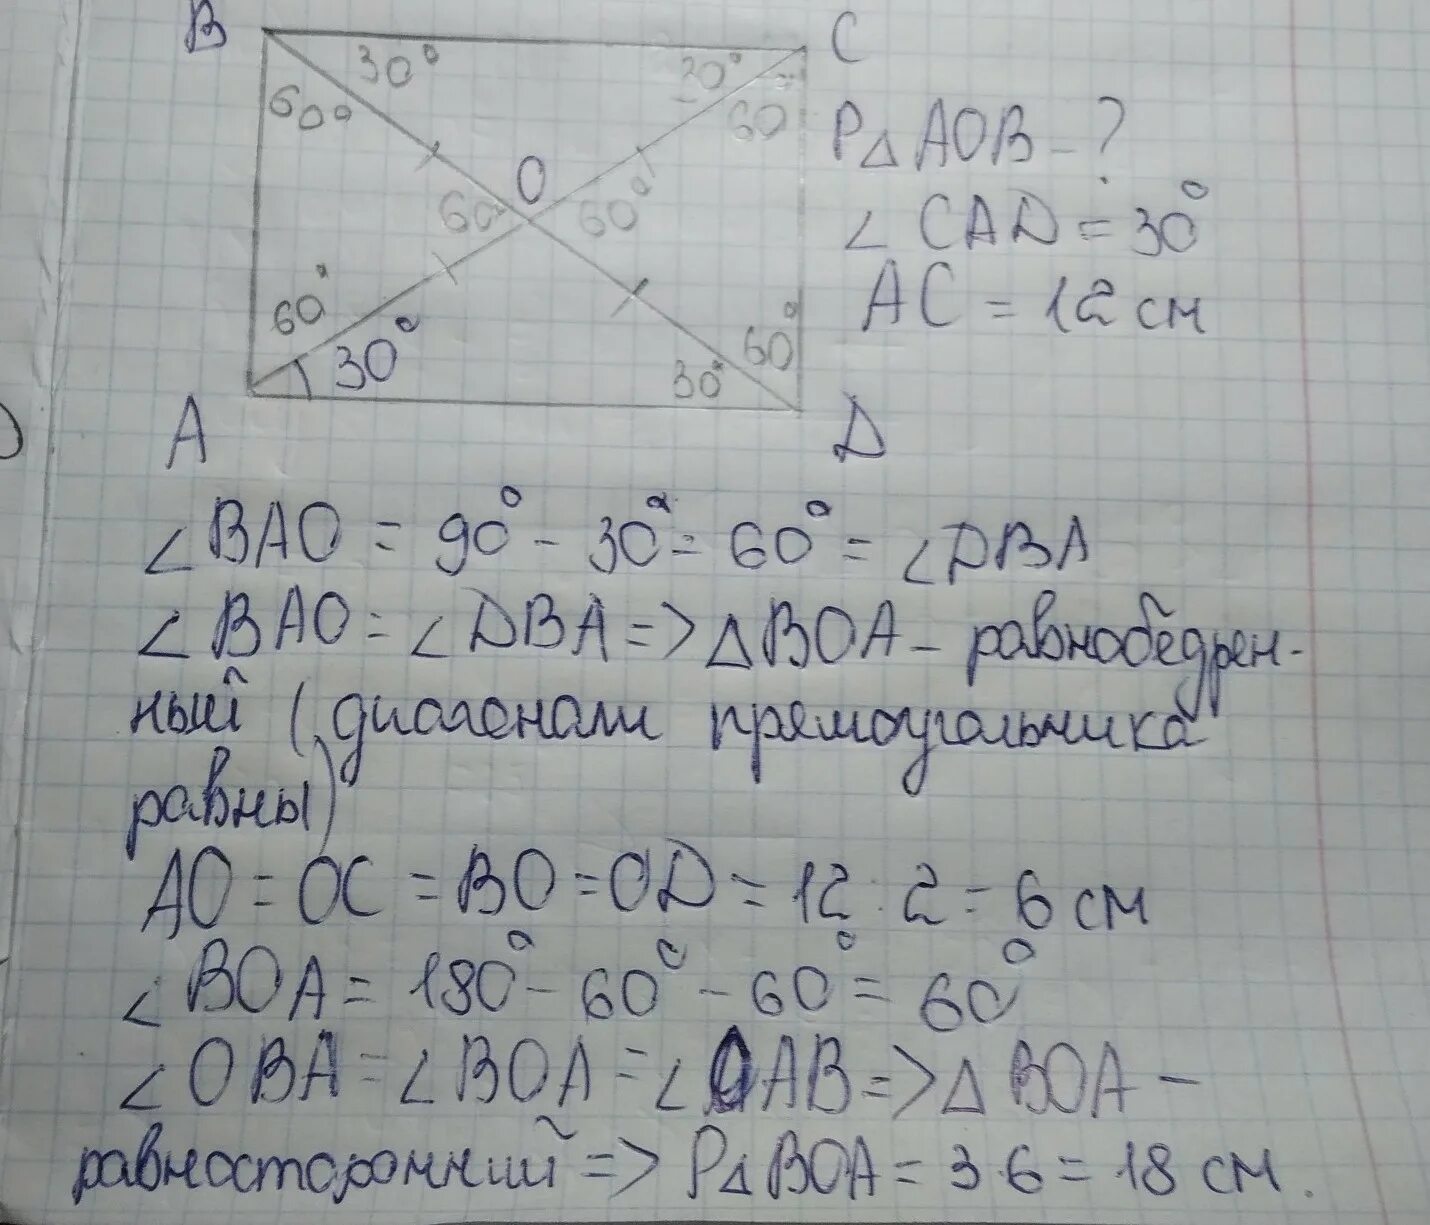 B
C
30°
30°
60°
60
O
60°
60°
60°
30°
60°
30°
A
D
P△AOB - ?
∠CAD = 30°
AC = 12 см
∠BAO = 90° - 30° = 60° = ∠DBA
∠BAO = ∠DBA => △BOA - равнобедрен-
ный (диагонали прямоугольника
равны)
AO = OC = BO = OD = 12 : 2 = 6 см
∠BOA = 180° - 60° - 60° = 60°
∠OBA = ∠BOA = ∠OAB => △BOA -
равносторонний => P△BOA = 3·6 = 18 см.